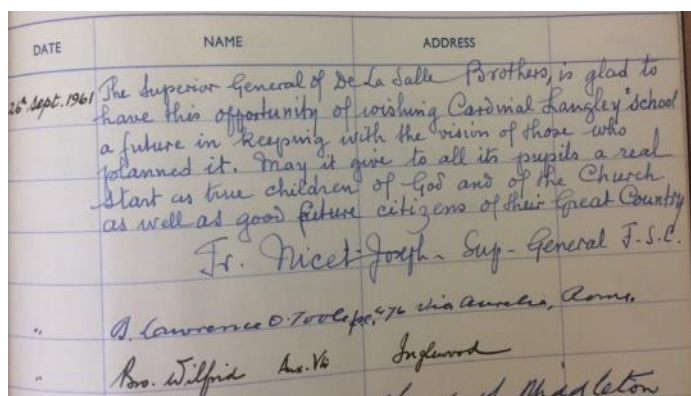 DATE NAME ADDRESS
26th Sept. 1961 The Superior General of De La Salle Brothers, is glad to
have this opportunity of wishing Cardinal Langley School
a future in keeping with the vision of those who
planned it. May it give to all its pupils a real
start as true children of God and of the Church
as well as good future citizens of their Great Country
Fr. Nicet-Joseph - Sup- General F.S.C.
" B. Lawrence O'Toole 476 Via Aurelia, Rome.
" Bro. Wilfrid Aux. Vis Inglewood
Middleton